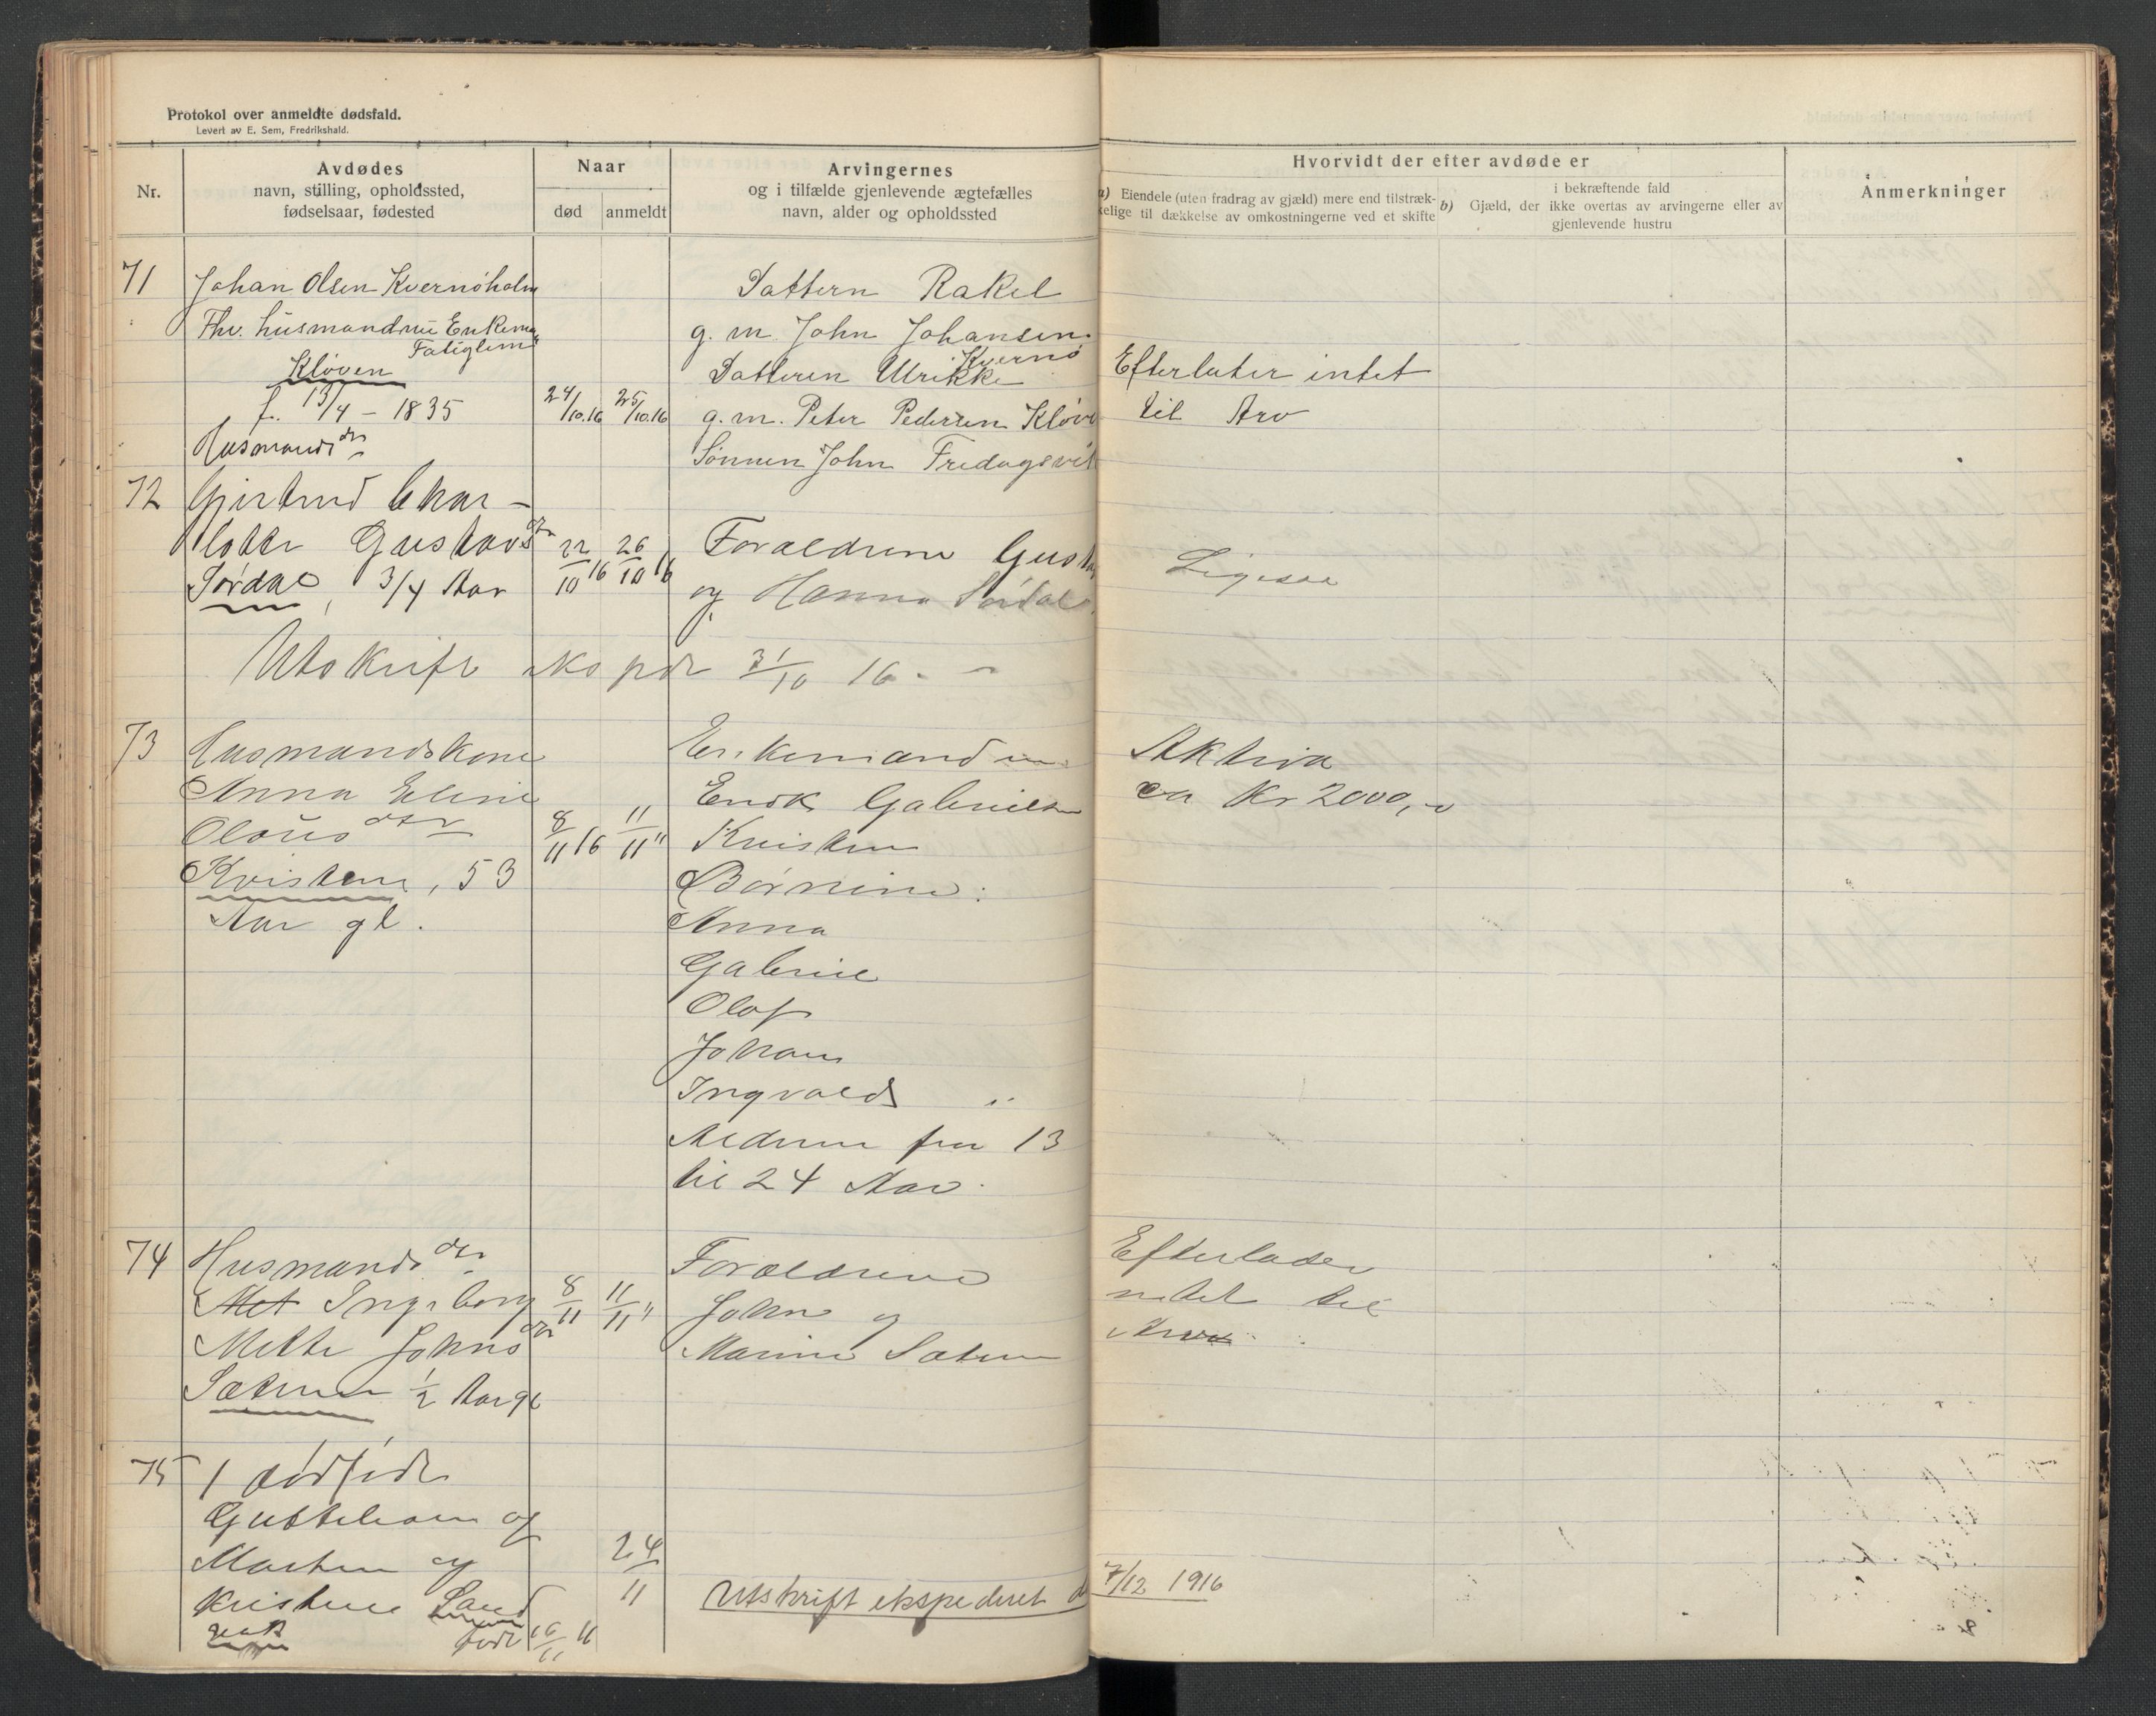 Protokol over anmeldte dødsfald.
Levert av E. Sem, Fredrikshald.
Nr.
Avdødes
navn, stilling, opholdssted,
fødselsaar, fødested
Naar
død anmeldt
Arvingernes
og i tilfælde gjenlevende ægtefælles
navn, alder og opholdssted
Hvorvidt der efter avdøde er
a) Eiendele (uten fradrag av gjæld) mere end tilstræk-
kelige til dækkelse av omkostningerne ved et skifte
i bekræftende fald
b) Gjæld, der ikke overtas av arvingerne eller av
gjenlevende hustru
Anmerkninger
71 Johan Olsen Kvernøholm
Fhv. husmand nu Enkem.
Fatiglem
Kløven
f. 13/4 - 1835
24/10.16 25/10.16
Dattern Rakel
g. m. John Johansen
Kvernø
Datteren Ulrikke
g. m. Peter Pedersen Kløve
Sønnen John Fredagsvik
Efterlater intet
til Arv
Husmandsdtr
72 Gjertrud Char-
lotte Gustavsdtr
Sørdal, 3/4 Aar
22/10 16 26/10 16
Forældrene Gustav
og Hanna Sørdal
Ligesaa
Utskrift eksped 31/10 16. -
73 Husmandskone
Anna Eline
Olausdtr
Kvistene, 53
Aar gl.
8/11 16 11/11 "
Enkemanden
Enok Gabrielsen
Kvisten
Børnene:
Anna
Gabriel
Olaf
Johan
Ingvald
Alderen fra 13
til 24 Aar.
Aktiva
ca Kr 2000,-
74 Husmandsdtr
Met Ingeborg
Mette Johnsdtr
Sæteren 1/2 Aar gl
8/11 11/11 "
Forældrene
John og
Marine Sæteren
Efterlader
intet til
Arv
75 1 dødfødt
Guttebarn af
Morten og
Kristine Sand
født 16/11 16
24/11
Utskrift ekspederet d 7/12 1916